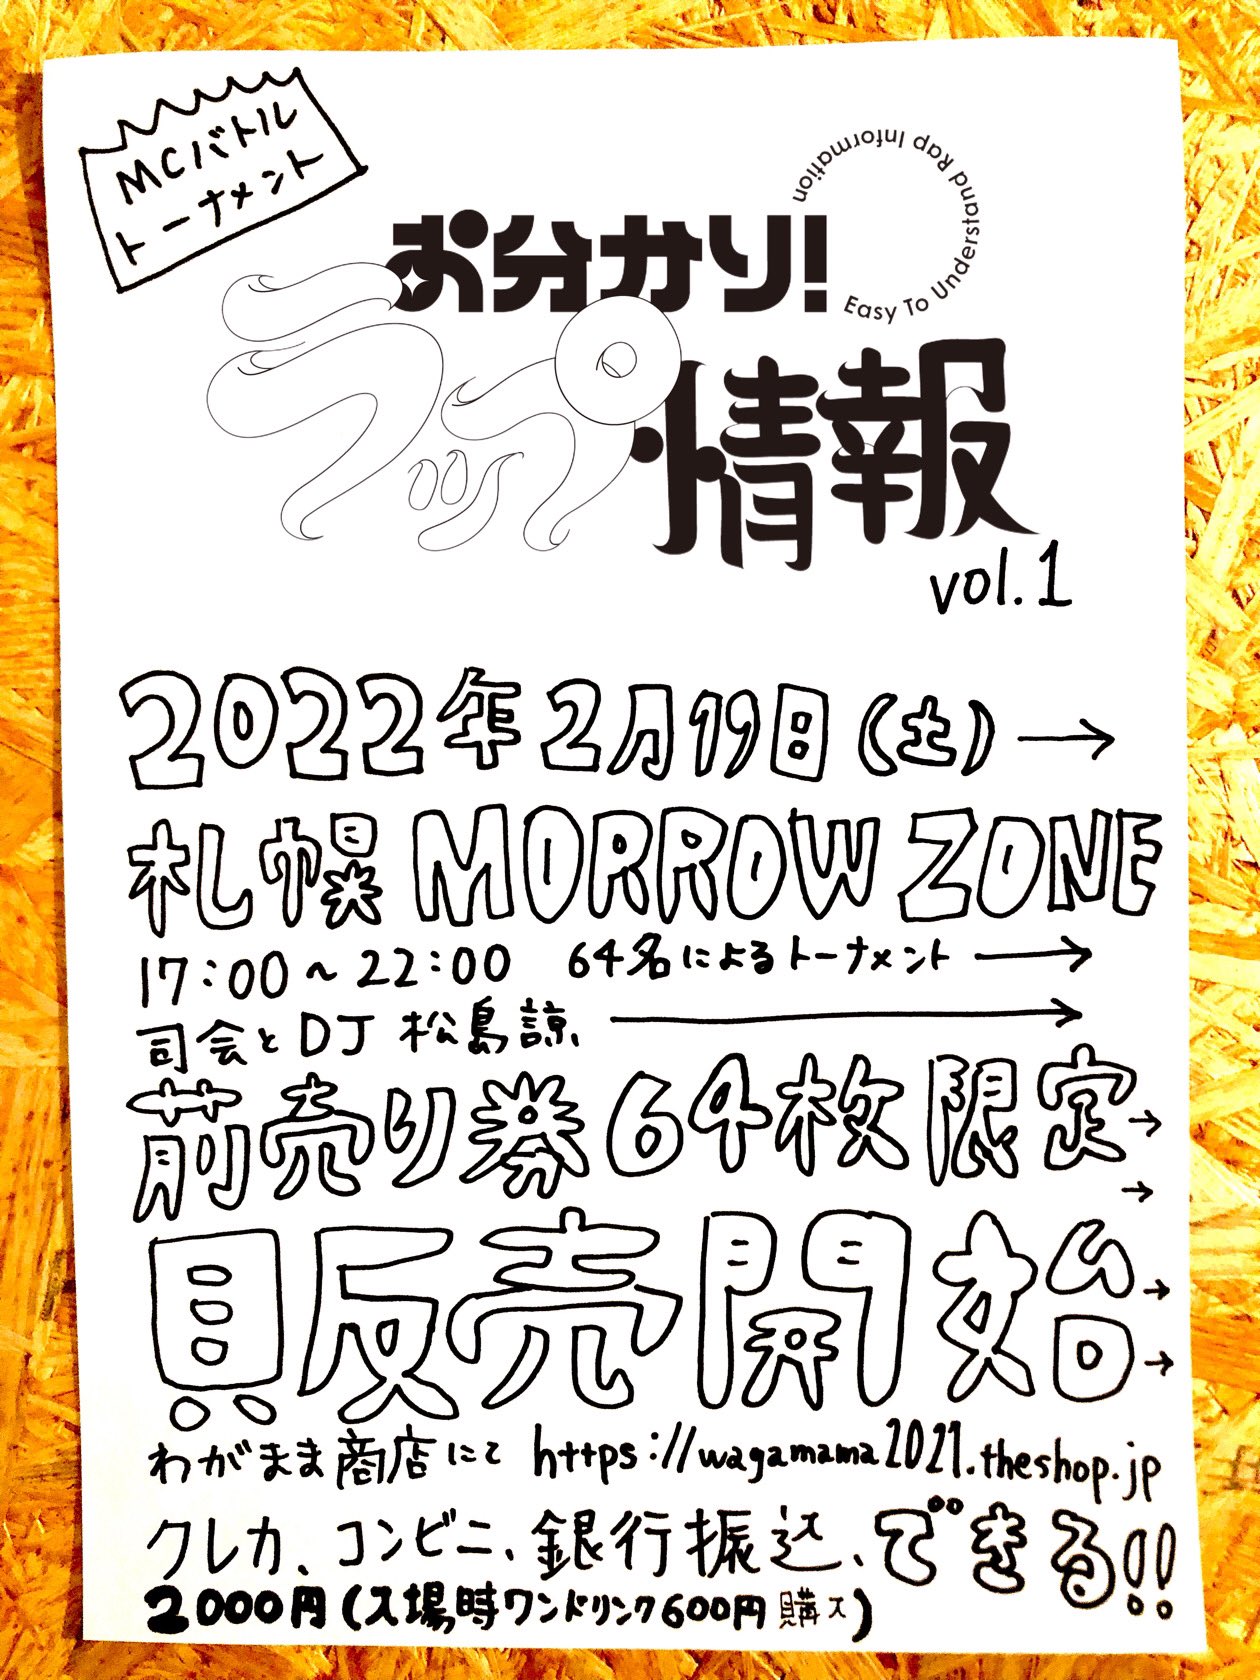 MCバトル
トーナメント
Easy To Understand Rap Information
お分かり!
ラップ
情報
vol.1
2022年2月19日(土)→
札幌 MORROW ZONE
17:00~22:00 64名によるトーナメント→
司会とDJ 松島諒→
前売り券64枚限定→
→
販売開始→
→
わがまま商店にて https://wagamama2021.theshop.jp
クレカ、コンビニ、銀行振込、できる!!
2000円(入場時ワンドリンク600円購入)